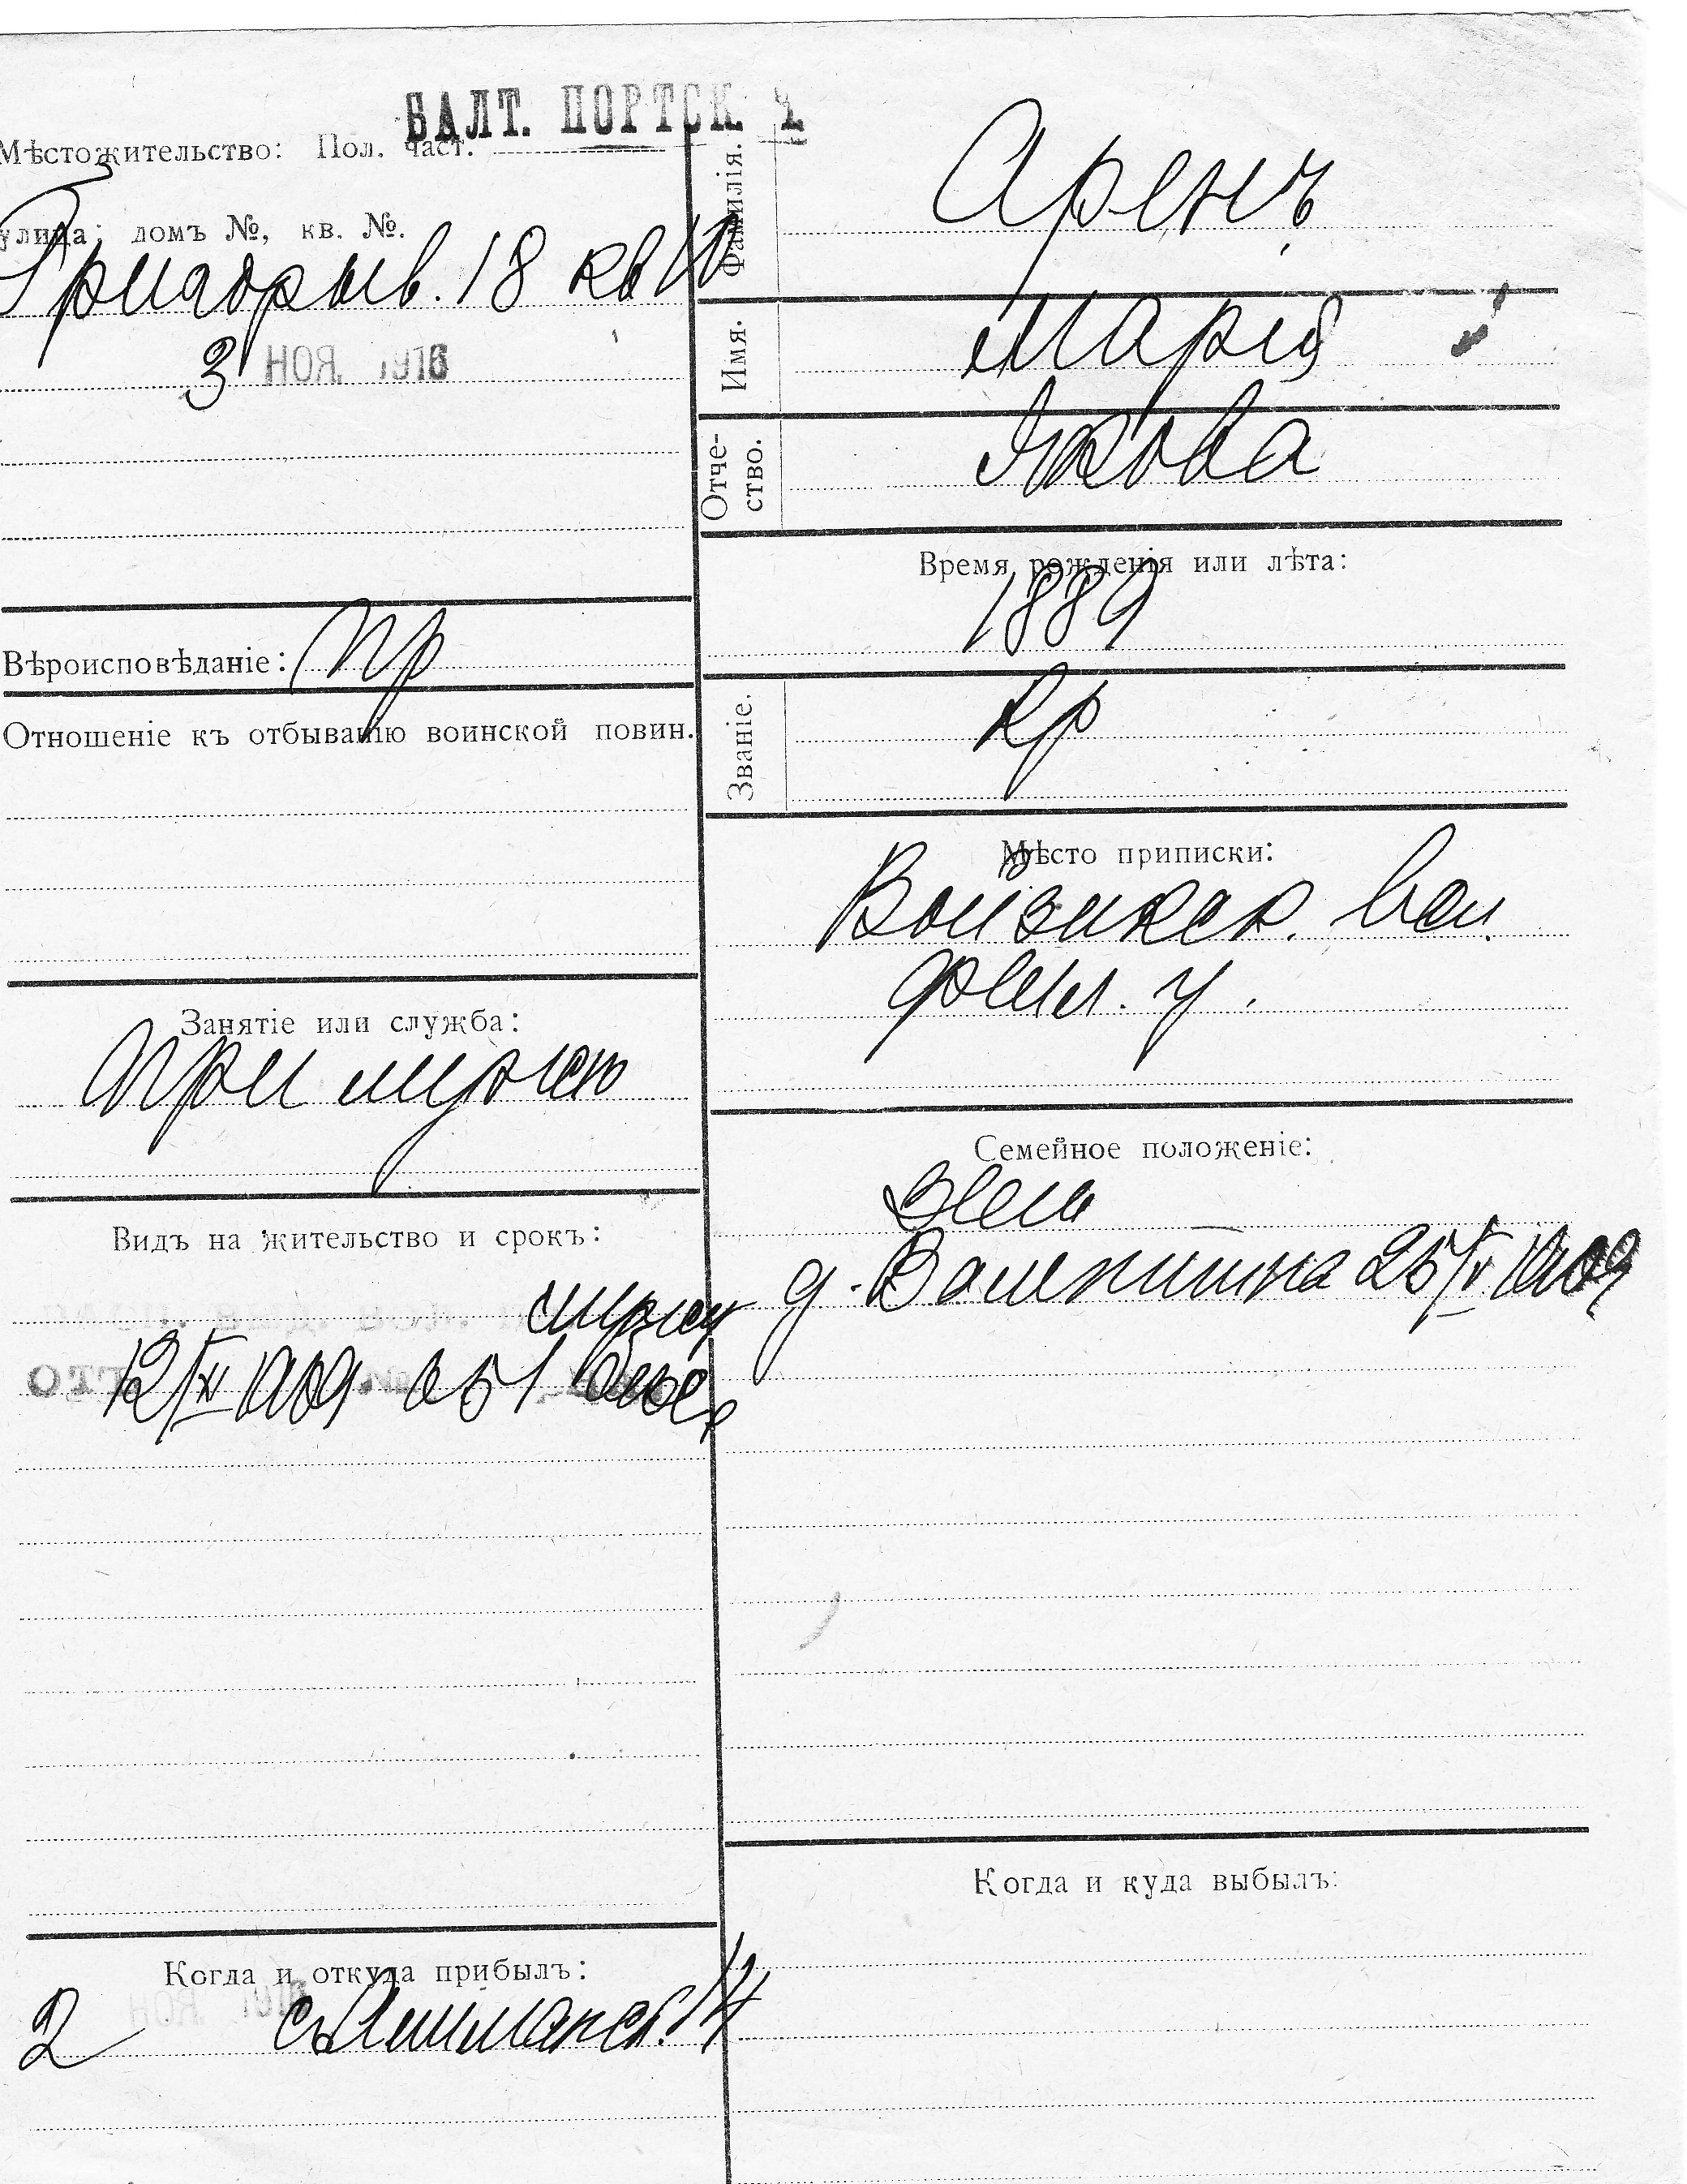 БАЛТ. ПОРТСК. Ч.
Мѣстожительство: Пол. част.
улица; домъ №, кв. №.
18 кв 10
3 НОЯ. 1916
Вѣроисповѣданіе: Пр
Отношеніе къ отбыванію воинской повин.
Занятіе или служба:
При мужѣ
Видъ на жительство и срокъ:
12/XII 1909
Когда и откуда прибылъ:
2
14
Фамилія. Аренъ
Имя. Марія
Отче-
ство. Якова
Время рожденія или лѣта:
1889
Званіе. Кр
Мѣсто приписки:
Войзикск. вол.
Фелл. у.
Семейное положеніе:
Зам
д. Валентина 25/V 1909
Когда и куда выбылъ: